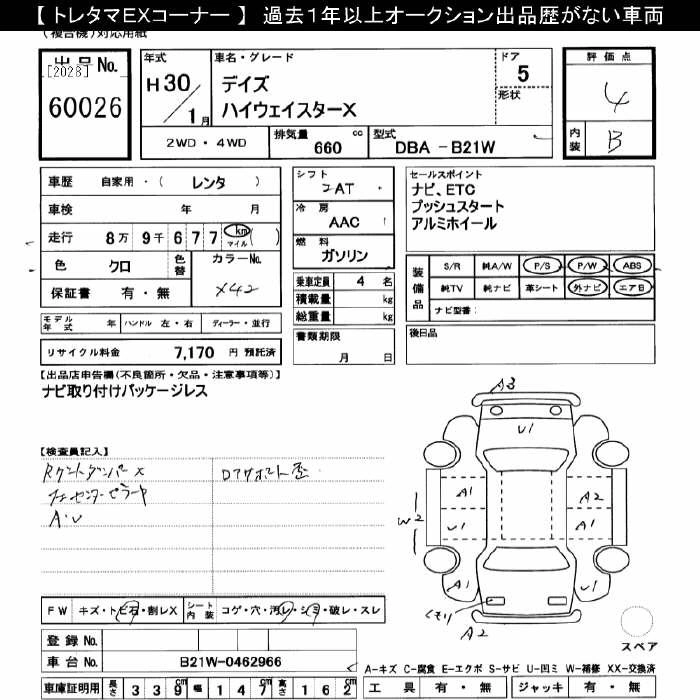 【 トレタマEXコーナー 】 過去1年以上オークション出品歴がない車両
(複合機)対応用紙
出品No.
[2028]
60026
年式
H30/1月
車名・グレード
デイズ
ハイウェイスターX
ドア
5
形状
2WD・4WD
排気量 660 cc
型式 DBA - B21W
評価点
4
内装 B
車歴 自家用・( レンタ )
車検 年 月
走行 8万 9千 6 7 7 km マイル ( )
色 クロ
色替
カラーNo.
X42
保証書 有・無
シフト
2AT
冷房
AAC
燃料
ガソリン
乗車定員 4 名
積載量 kg
総重量 kg
書類期限
月 日
セールスポイント
ナビ、ETC
プッシュスタート
アルミホイール
装備品
S/R 純A/W P/S P/W ABS
純TV 純ナビ 革シート 外ナビ エアB
ナビ型番:
後日品
モデル年式 年 ハンドル 左・右 ディーラー・並行
リサイクル料金 7,170 円 預託済
【出品店申告欄(不良箇所・欠品・注意事項等)】
ナビ取り付けパッケージレス
【検査員記入】
A・U
A3
U1
A1
A2
W2
U1
A1
A1
U1
A2
スペア
FW キズ・トビ石・割レX
シート内装 コゲ・穴・汚レ・シミ・破レ・スレ
登録No.
車台No. B21W-0462966
車庫証明用 長さ 339 幅 147 高さ 162 cm
A-キズ C-腐食 E-エクボ S-サビ U-凹ミ W-補修 XX-交換済
工具 有・無 ジャッキ 有・無